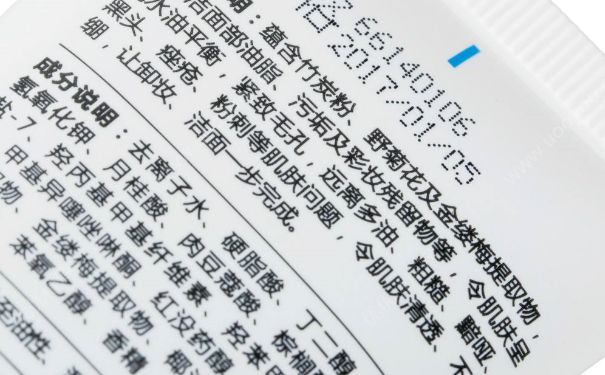 66140106
2017/01/05
明：蕴含竹炭粉、野菊花及金缕梅提取物，
洁面部油脂、污垢及彩妆残留物等，令肌肤呈
水油平衡，紧致毛孔，远离多油、粗糙、黯哑、
黑头、痤疮、粉刺等肌肤问题，令肌肤清透、不
绷，让卸妆、洁面一步完成。
成分说明：去离子水、硬脂酸、丁二醇
氢氧化钾、月桂酸、肉豆蔻酸、棕榈
-7、羟丙基甲基纤维素、轻苯甲
甲基异噻唑啉酮、红没药醇、椰
物、金缕梅提取物、香精
苯氧乙醇
至油性、